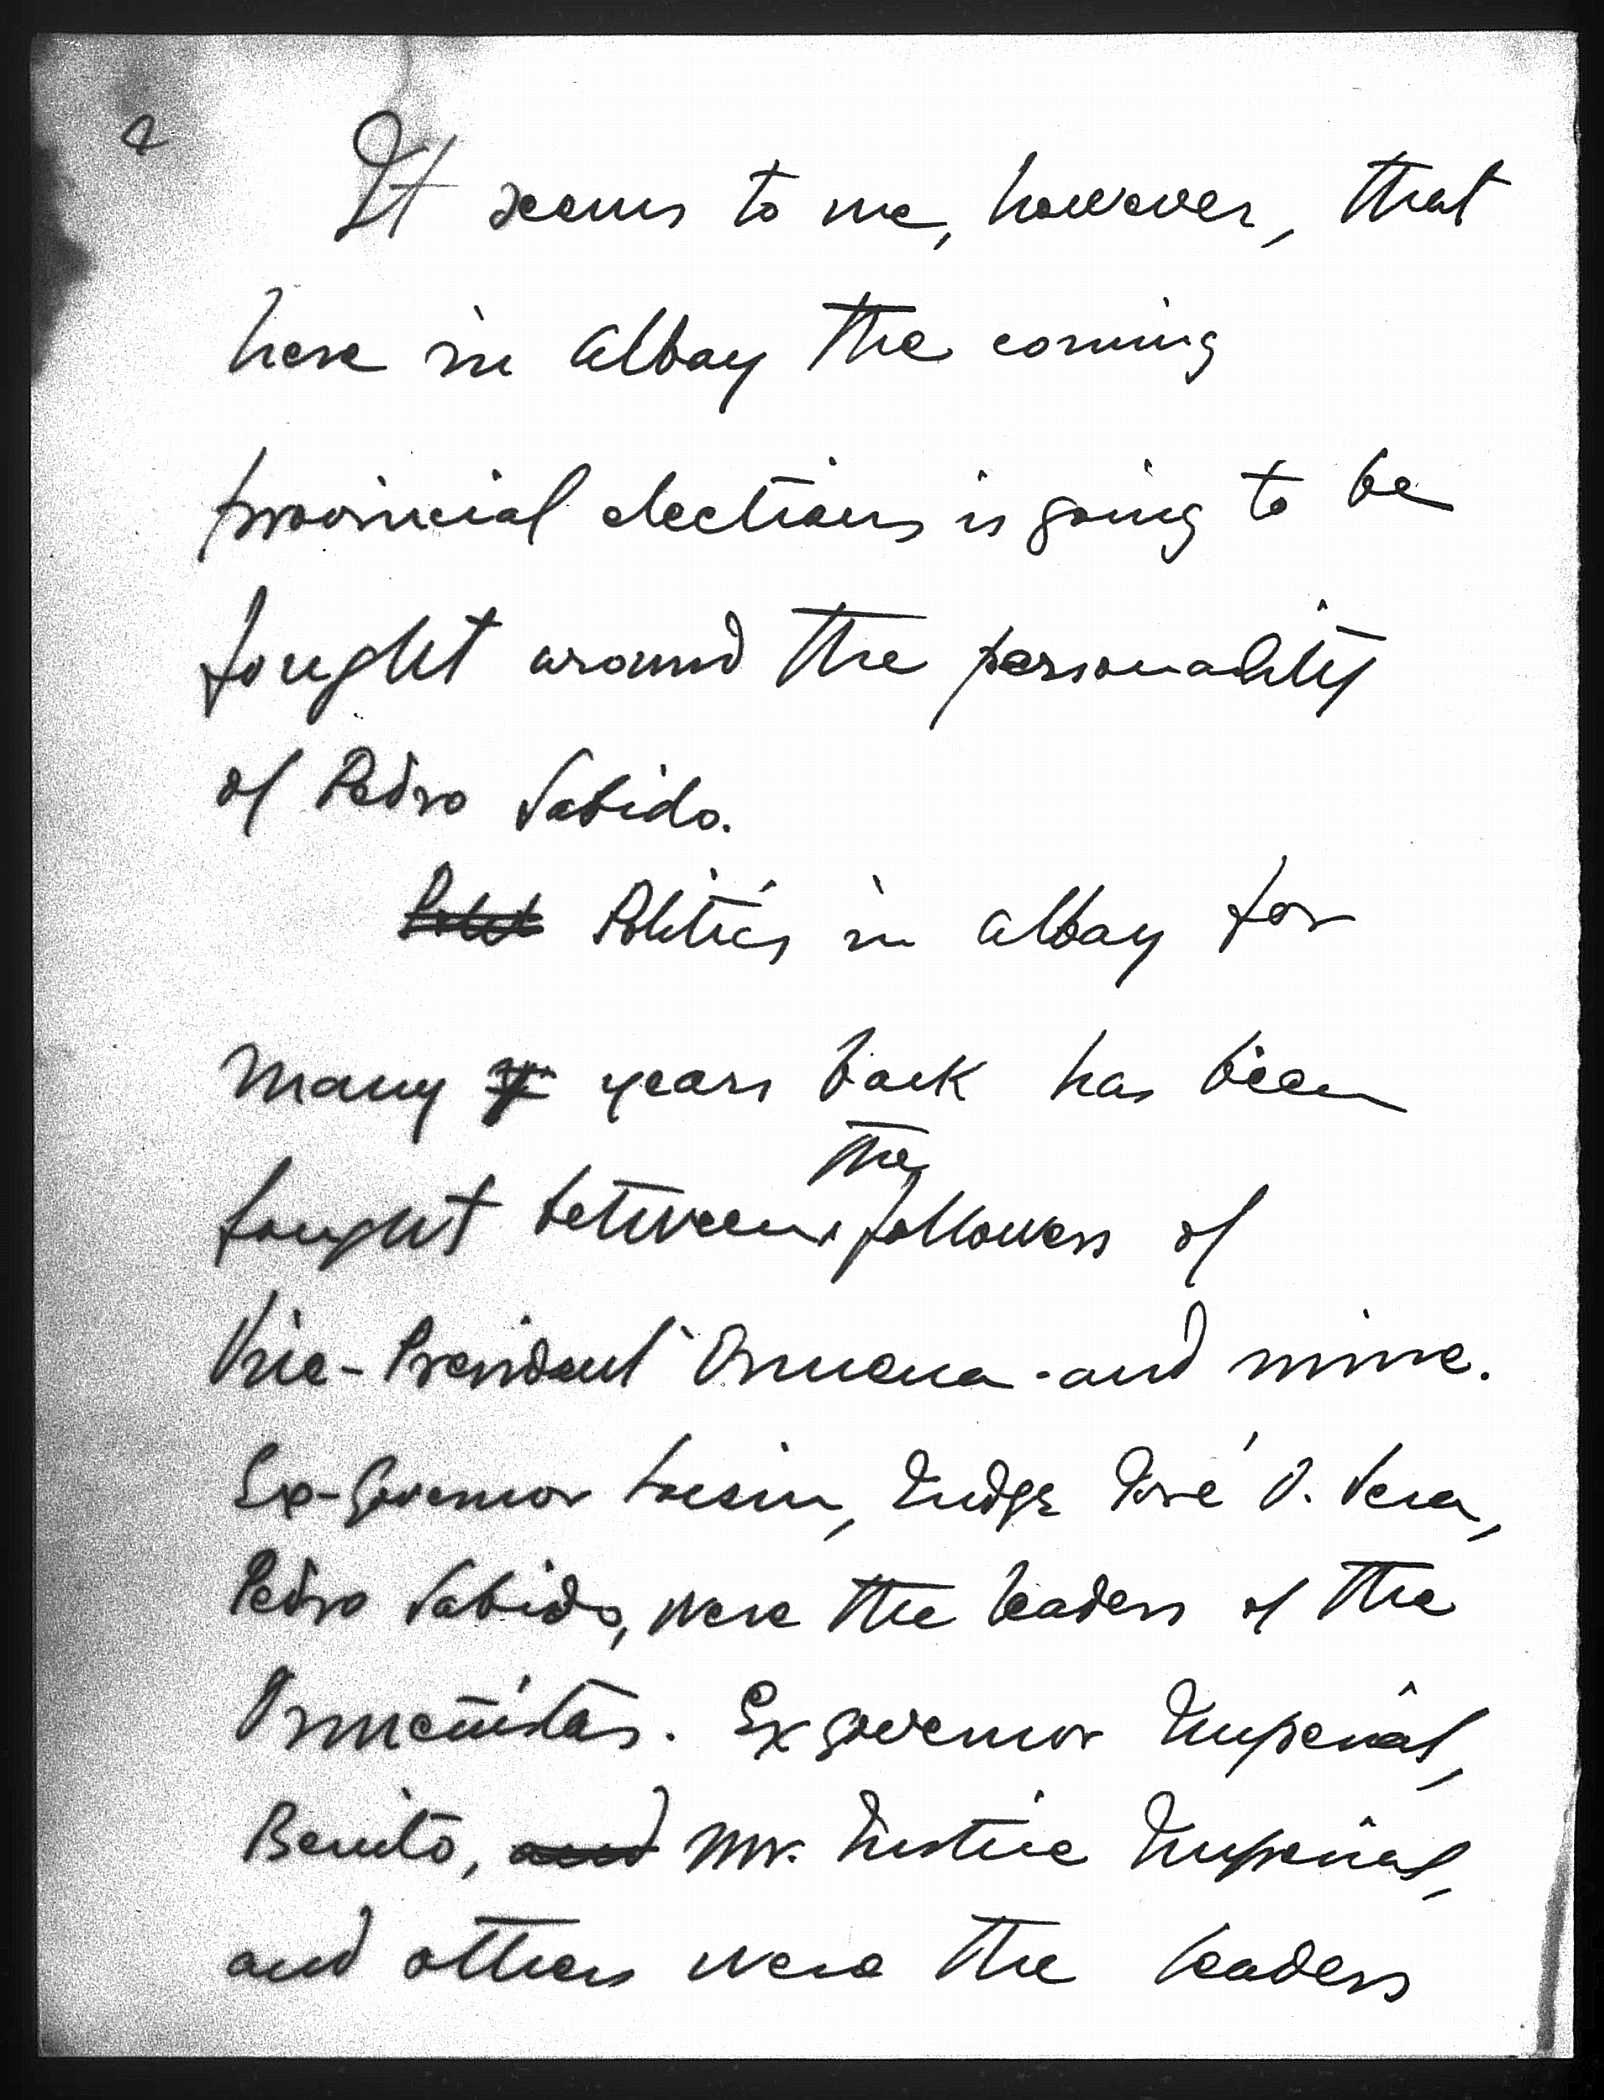 2
It seems to me, however, that
here in Albay the coming
provincial elections is going to be
fought around the personality
of Pedro Sabido.
Polit Politics in Albay for
many y years back has been
the
fought between followers of
Vice-President Osmena and mine.
Ex-Governor Locsin, Judge José O. Vera,
Pedro Sabido, were the leaders of the
Osmeñistas. Ex governor Imperial,
Benito, and Mr. Justice Imperial,
and others were the leaders